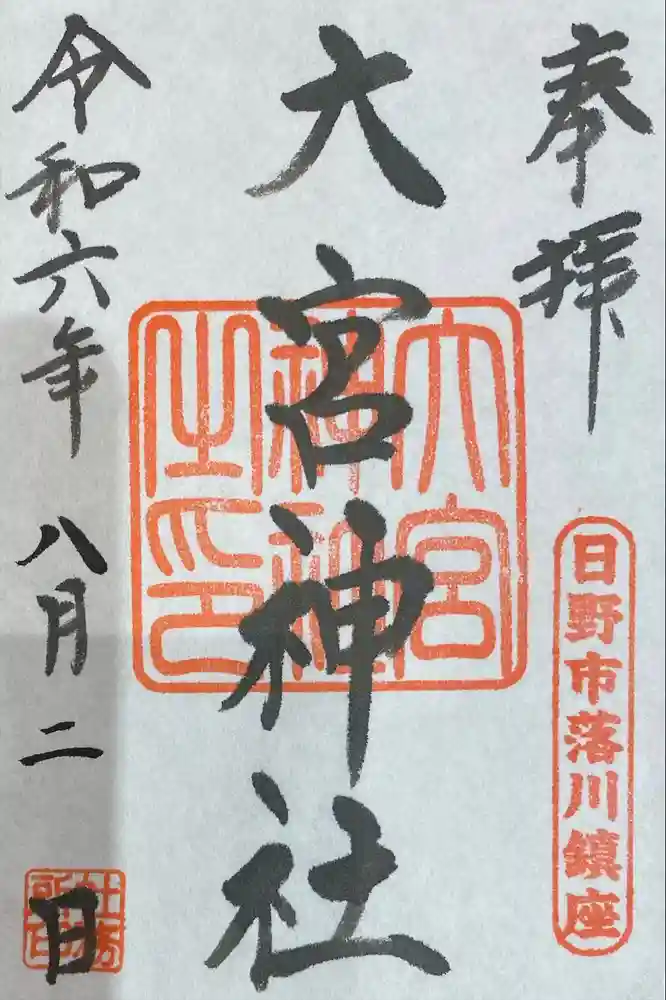 奉拝
日野市落川鎮座
大宮神社
大宮
神社
之印
令和六年
八月二日